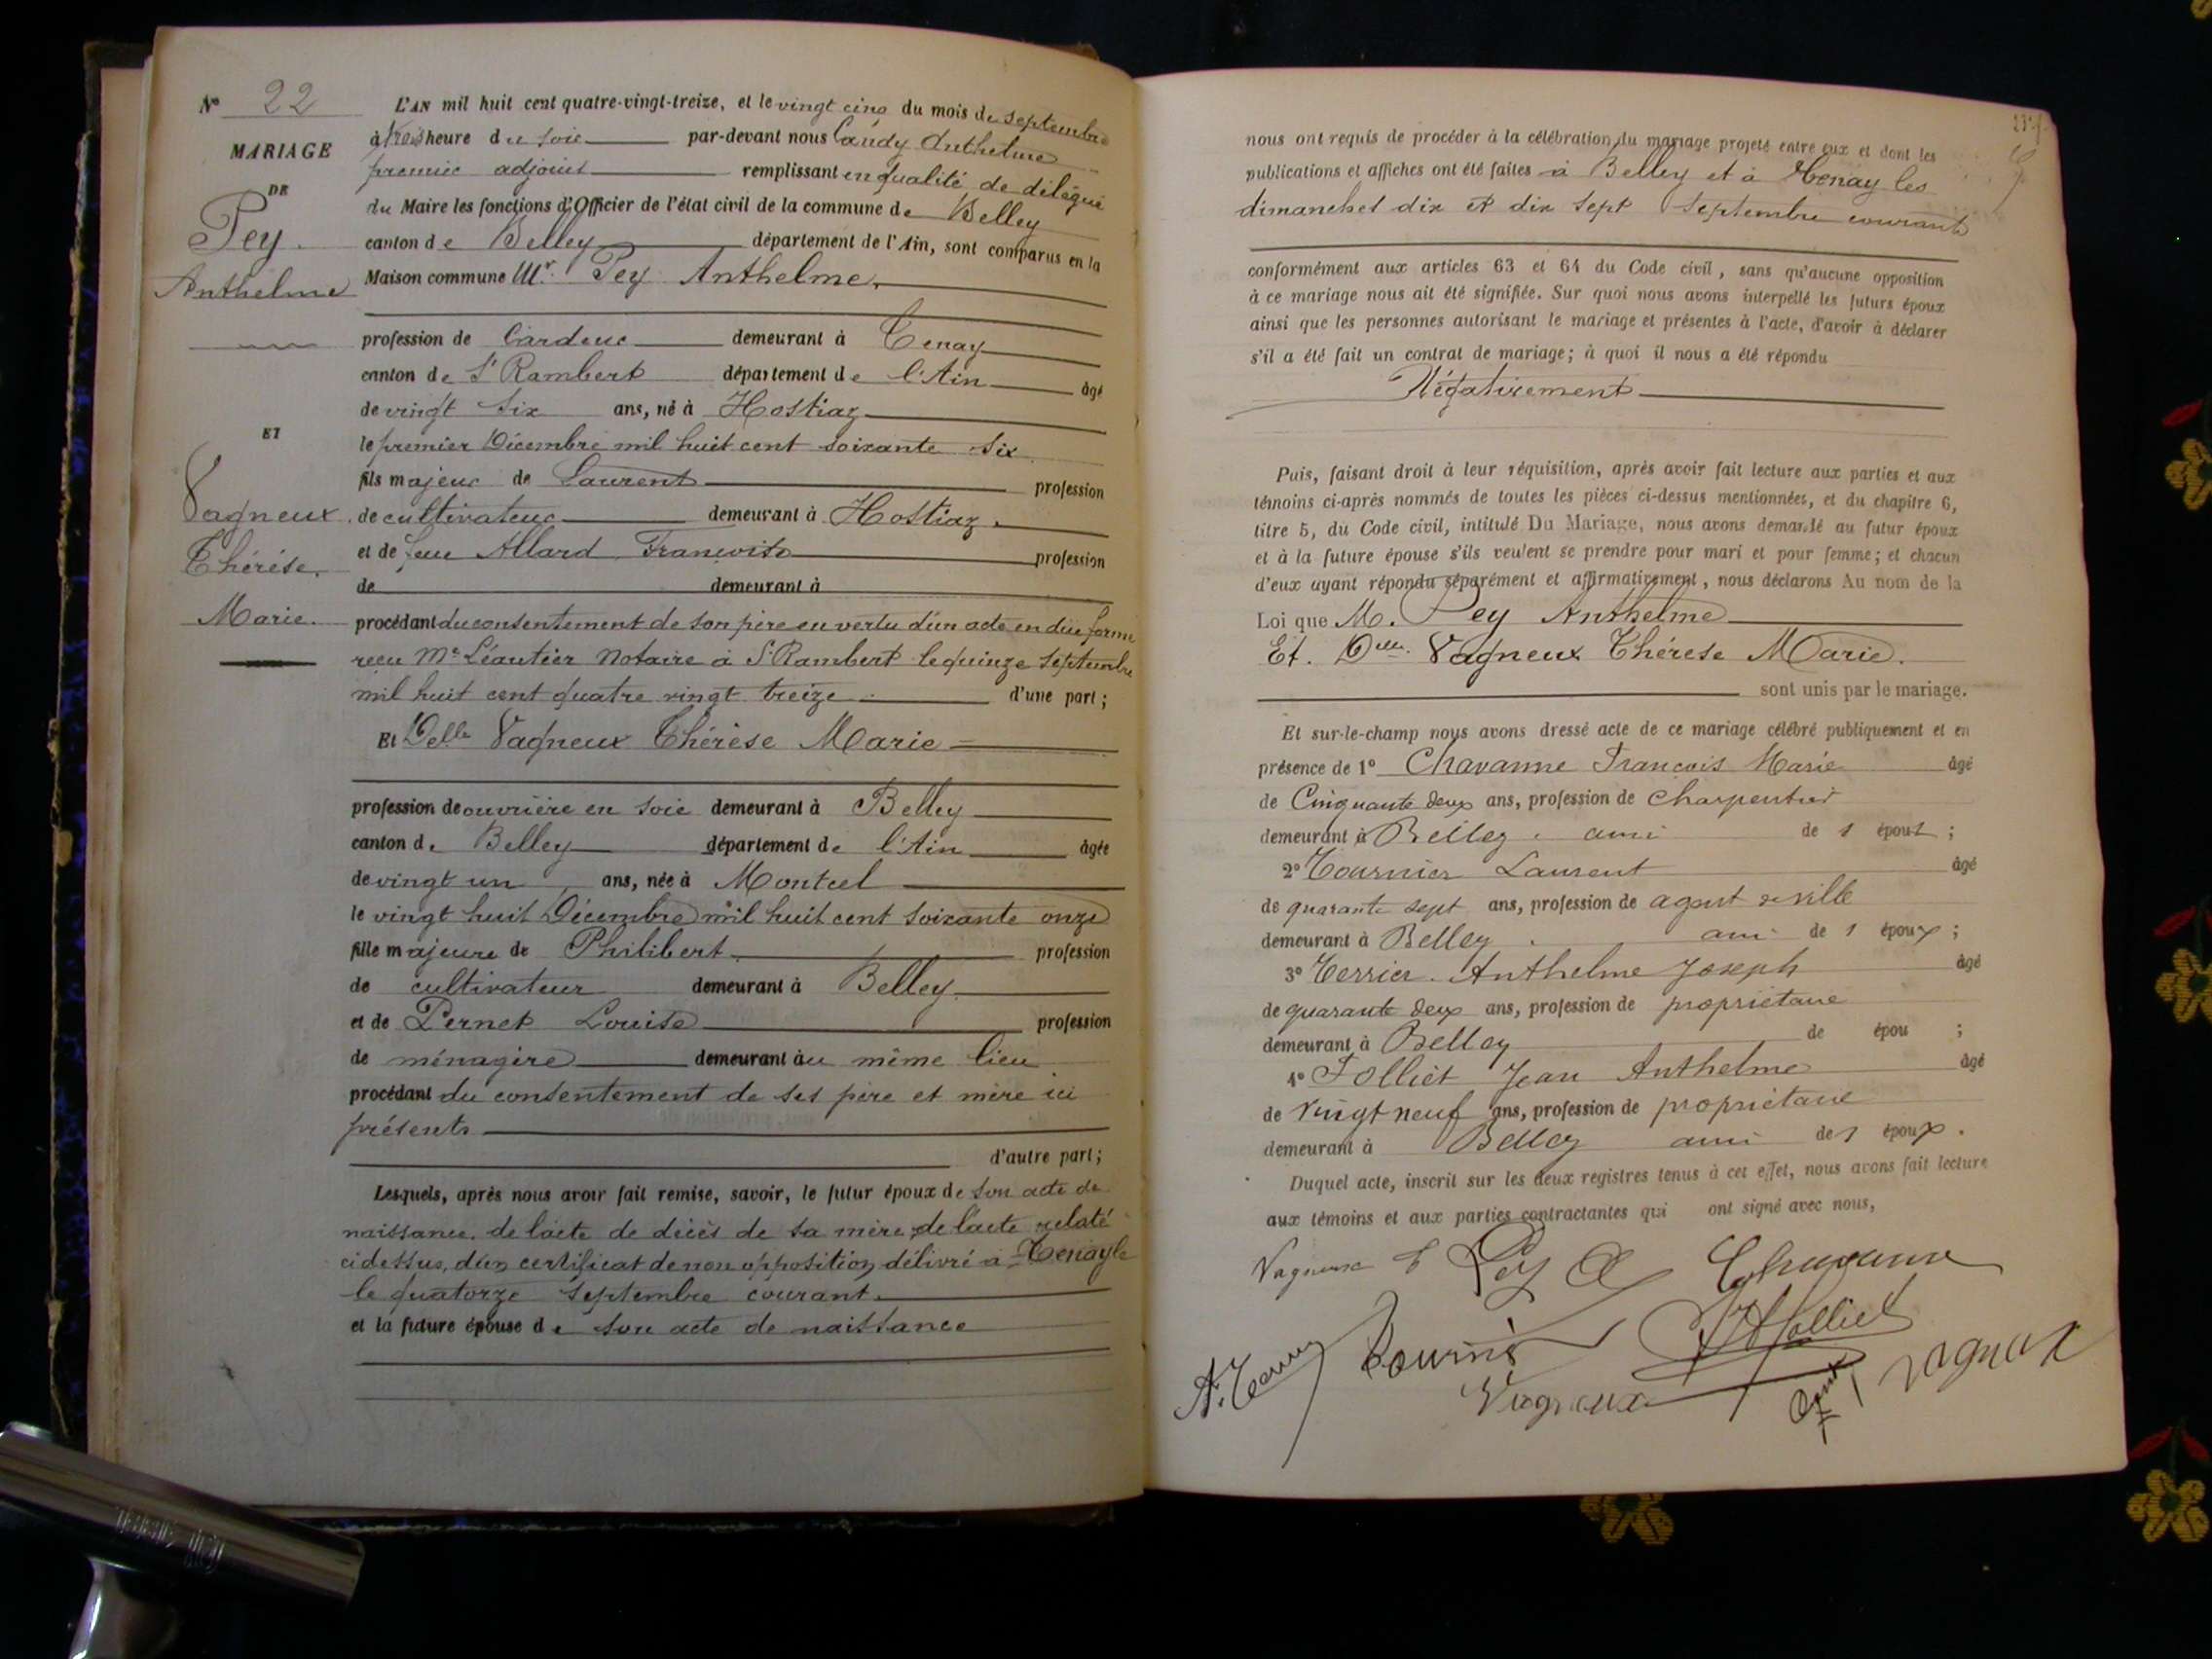 N° 22
MARIAGE
DE
Pey
Anthelme
ET
Vagneux
Thérèse
Marie.
L'AN mil huit cent quatre-vingt-treize, et le vingt cinq du mois de septembre
à trois heure du soir par-devant nous Candy Anthelme
premier adjoint remplissant en qualité de délégué
du Maire les fonctions d'Officier de l'état civil de la commune de Belley
canton de Belley département de l'Ain, sont comparus en la
Maison commune Mr. Pey Anthelme,
profession de Cardeur demeurant à Tenay
canton de St Rambert département de l'Ain âgé
de vingt six ans, né à Hostiaz
le premier Décembre mil huit cent soixante six
fils majeur de Laurent profession
de cultivateur demeurant à Hostiaz.
et de feue Allard Francoise profession
de demeurant à
procédant du consentement de son père en vertu d'un acte en due forme
reçu Me Léautier Notaire à St Rambert le quinze septembre
mil huit cent quatre vingt treize d'une part;
Et Delle Vagneux Thérèse Marie
profession de ouvrière en soie demeurant à Belley
canton de Belley département de l'Ain âgée
de vingt un ans, née à Montcel
le vingt huit Décembre mil huit cent soixante onze
fille majeure de Philibert profession
de cultivateur demeurant à Belley
et de Pernet Louise profession
de ménagère demeurant au même lieu
procédant du consentement de ses père et mère ici
présents
d'autre part;
Lesquels, après nous avoir fait remise, savoir, le futur époux de son acte de
naissance, de l'acte de décès de sa mère, de l'acte relaté
ci dessus, d'un certificat de non opposition délivré à Tenay le
le quatorze septembre courant.
et la future épouse de son acte de naissance
nous ont requis de procéder à la célébration du mariage projeté entre eux et dont les
publications et affiches ont été faites à Belley et à Tenay les
dimanches dix et dix sept septembre courant
conformément aux articles 63 et 64 du Code civil, sans qu'aucune opposition
à ce mariage nous ait été signifiée. Sur quoi nous avons interpellé les futurs époux
ainsi que les personnes autorisant le mariage et présentes à l'acte, d'avoir à déclarer
s'il a été fait un contrat de mariage; à quoi il nous a été répondu
Négativement
Puis, faisant droit à leur réquisition, après avoir fait lecture aux parties et aux
témoins ci-après nommés de toutes les pièces ci-dessus mentionnées, et du chapitre 6,
titre 5, du Code civil, intitulé Du Mariage, nous avons demandé au futur époux
et à la future épouse s'ils veulent se prendre pour mari et pour femme; et chacun
d'eux ayant répondu séparément et affirmativement, nous déclarons Au nom de la
Loi que M. Pey Anthelme
Et. Delle. Vagneux Thérèse Marie.
sont unis par le mariage.
Et sur-le-champ nous avons dressé acte de ce mariage célébré publiquement et en
présence de 1° Chavanne Francois Marie âgé
de Cinquante deux ans, profession de charpentier
demeurant à Belley. ami de l époux;
2° Tournier Laurent âgé
de quarante sept ans, profession de agent de ville
demeurant à Belley ami de l époux;
3° Terrier Anthelme Joseph âgé
de quarante deux ans, profession de propriétaire
demeurant à Belley de épou ;
4° Folliet Jean Anthelme âgé
de vingt neuf ans, profession de propriétaire
demeurant à Belley ami de l époux.
Duquel acte, inscrit sur les deux registres tenus à cet effet, nous avons fait lecture
aux témoins et aux parties contractantes qui ont signé avec nous,
Vagneux T Pey A Chavanne
Folliet
Vagneux